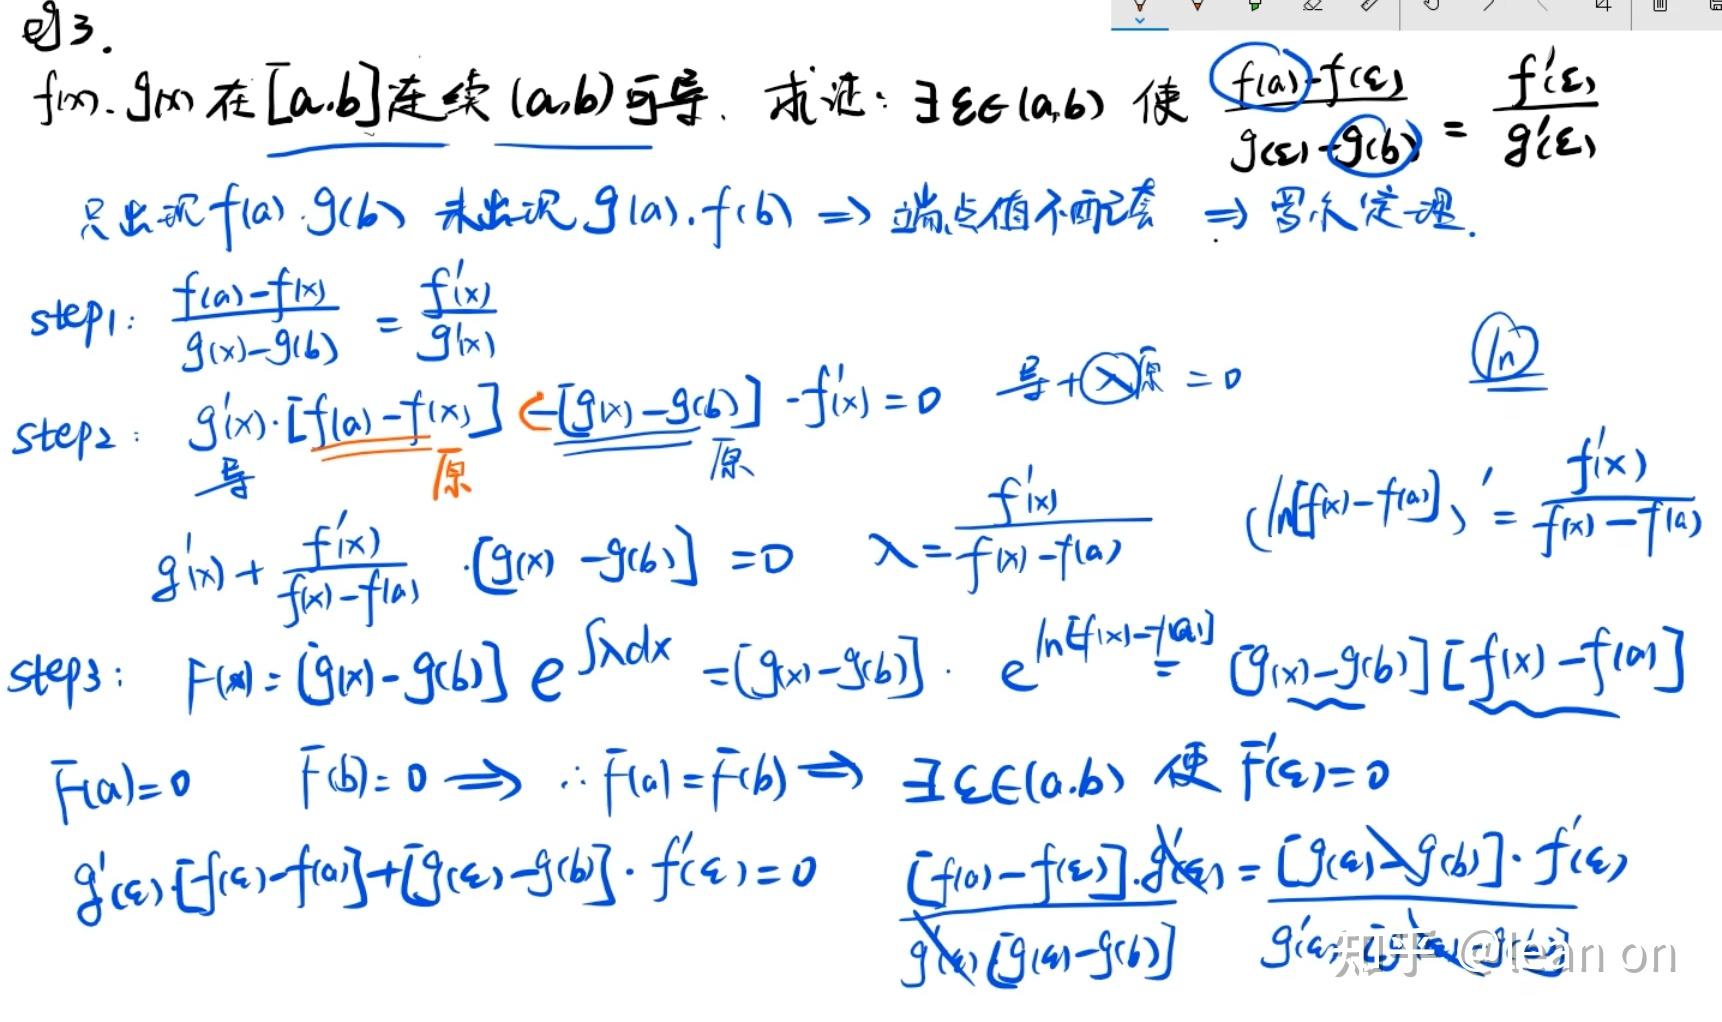 例3.
f(x).g(x)在[a.b]连续 (a,b)可导. 求证:∃ε∈(a,b) 使 (f(a)-f(ε))/(g(ε)-g(b)) = f'(ε)/g'(ε)
只出现f(a).g(b) 未出现g(a).f(b) ⇒ 端点值不配套 ⇒ 罗尔定理.
step1: (f(a)-f(x))/(g(x)-g(b)) = f'(x)/g'(x)
ln
step2: g'(x)·[f(a)-f(x)] -[g(x)-g(b)]·f'(x)=0 导+λ原=0
导 原 原
g'(x)+ f'(x)/(f(x)-f(a)) ·[g(x)-g(b)]=0 λ= f'(x)/(f(x)-f(a)) (ln[f(x)-f(a)])' = f'(x)/(f(x)-f(a))
step3: F(x)=[g(x)-g(b)] e^∫λdx =[g(x)-g(b)]· e^ln[f(x)-f(a)] = [g(x)-g(b)][f(x)-f(a)]
F(a)=0 F(b)=0 ⇒ ∴F(a)=F(b) ⇒ ∃ε∈(a.b) 使 F'(ε)=0
g'(ε)·[f(ε)-f(a)]+[g(ε)-g(b)]·f'(ε)=0 [f(a)-f(ε)]·g'(ε)/g'(ε)[g(ε)-g(b)] = [g(ε)-g(b)]·f'(ε)/g'(ε)[g(ε)-g(b)]
知乎 @lean on